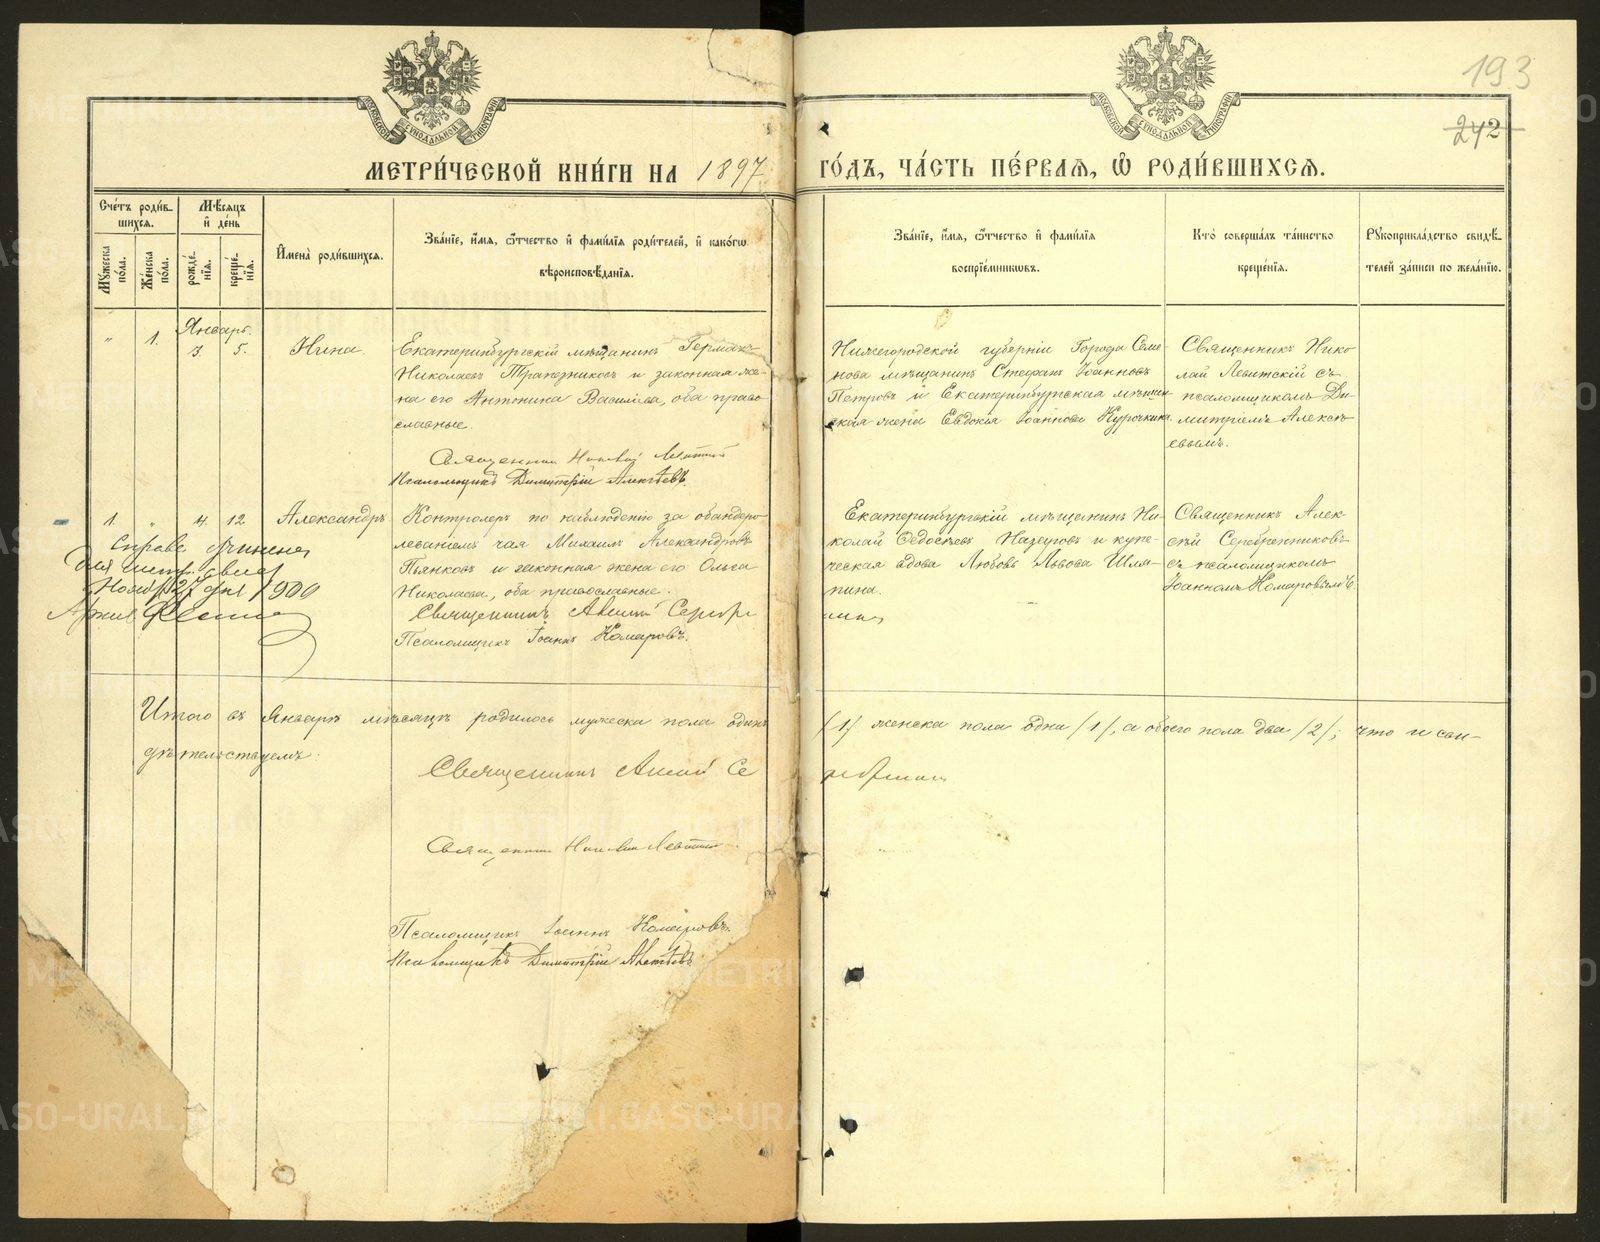 193
242
МЕТРИ́ЧЕСКОЙ КНИ́ГИ НА 1897 ГО́ДЪ, ЧА́СТЬ ПЕ́РВАЯ, Ѽ РОДИ́ВШИХСЯ.
Сче́тъ роди́в-
шихся.
Мѣсяцъ
и҆ де́нь
Мꙋжеска
по́ла.
Же́нска
по́ла.
рожде́-
нїѧ.
креще-
нїѧ.
И҆мена̀ роди́вшихся.
Зва́нїе, и҆́мѧ, ѻ҆́тчество и҆ фами́лїѧ роди́телей, и҆ како́гѡ
вѣроисповѣ́данїѧ.
Зва́нїе, и҆́мѧ, ѻ҆́тчество и҆ фами́лїѧ
воспрїе́мникѡвъ.
Кто̀ соверша́лъ та́инство
креще́нїѧ.
Рꙋкоприкла́дство свидѣ́-
телей за́писи по жела́нїю.
Январь.
" 1. 3. 5. Нина.
Екатеринбургскій мѣщанинъ Германъ
Николаевъ Трапезниковъ и законная же-
на его Антонина Васильева, оба право-
славные.
Священник Николай Левитскій
Псаломщикъ Димитрій Алексѣевъ.
Нижегородской губерніи Города Семе-
нова мѣщанинъ Стефанъ Іоанновъ
Петровъ и Екатеринбургская мѣщан-
ская жена Евдокія Іоаннова Курочкина.
Священникъ Нико-
лай Левитскій съ
псаломщикомъ Ди-
митріемъ Алексѣ-
евымъ.
1. " 4. 12 Александръ
Контролеръ по наблюденію за обандеро-
леваніемъ чая Михаилъ Александровъ
Пьянковъ и законная жена его Ольга
Николаева, оба православные.
Священникъ Алексій Серебре
Псаломщикъ Іоаннъ Комаровъ.
Екатеринбургскій мѣщанинъ Ни-
колай Ѳедосѣевъ Назаровъ и купе-
ческая вдова Любовь Львова Шля-
пина.
Священникъ Алек-
сѣй Серебренниковъ
съ псаломщикомъ
Іоанномъ Комаровымъ.
1900
Итого въ Январѣ мѣсяцѣ родилось мужеска пола одинъ /1/ женска пола одна /1/, а обоего пола два /2/; что и сви-
дѣтельствуемъ.
Священникъ Алексій Се
Священник Николай Левитскій
Псаломщикъ Іоаннъ Комаровъ.
Псаломщикъ Димитрій Алексѣевъ
METRIKI.GASO-URAL.RU